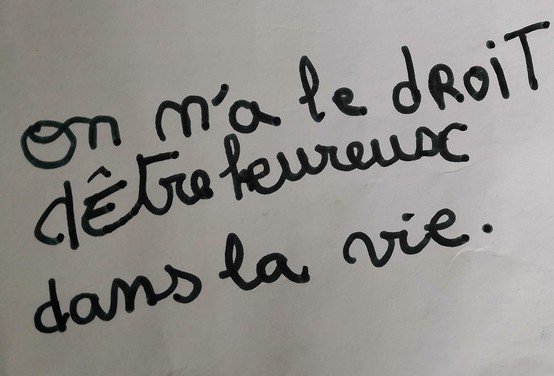 On n'a le dRoiT
d'Être heureux
dans la vie.